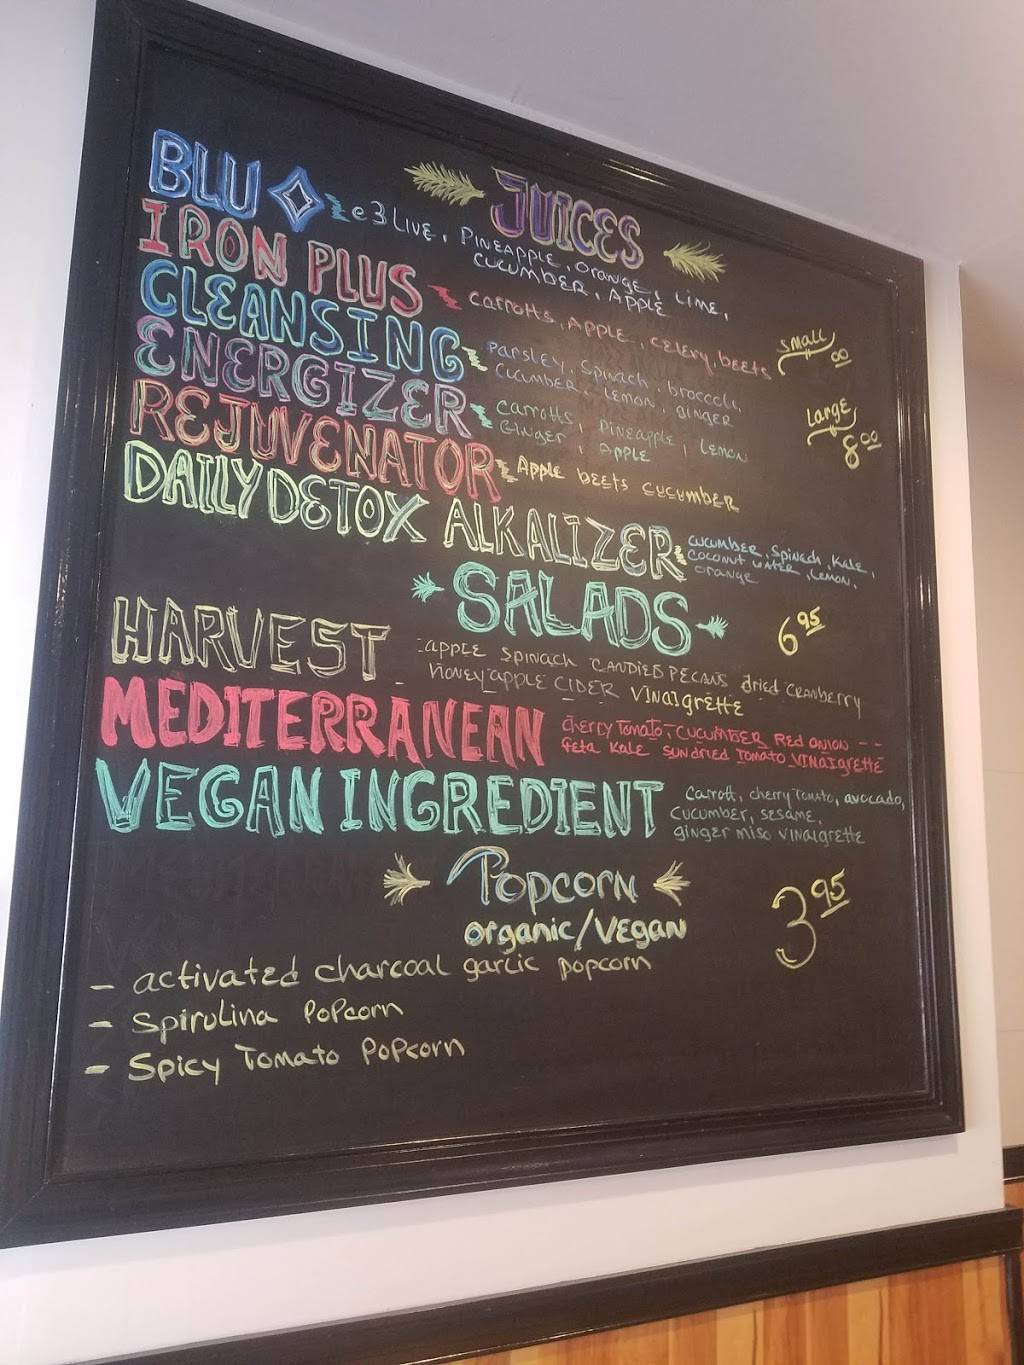 JUICES
BLU e3LIVE, PINEAPPLE, Orange, Lime,
CUCUMBER, APPLE
IRON PLUS Carrotts, APPLE, CElERy, bEEts
CLEANSING Parsley, Spinach, broccoli,
CUCUMBER, LEMON, GINGER
ENERGIZER Carrotts, Pineapple, Lemon
GingER, APPLE
REJUVENATOR Apple bEEts CUCUMBER
DAILY DETOX ALKALIZER CUCUMBER, Spinach, Kale,
COCONUT WATER, LEMON,
orange
Small
00
Large
8 00
SALADS
6 95
HARVEST APPLE SPINACH CANDIED PECANS dried CRANBERRY
HONEY APPLE CIDER VINAIGRETTE
MEDITERRANEAN Cherry Tomato, CUCUMBER RED ONION --
FETA KALE SUNdried TOMATO VINAIGRETTE
VEGAN INGREDIENT Carrott, cherry Tomato, avocado,
CUCUMBER, SESAME,
ginger miso VINAIGRETTE
POPCORN
organic/VEgan
3 95
- activated charcoal garlic popcorn
- Spirulina PoPcorn
- Spicy Tomato PoPcorn